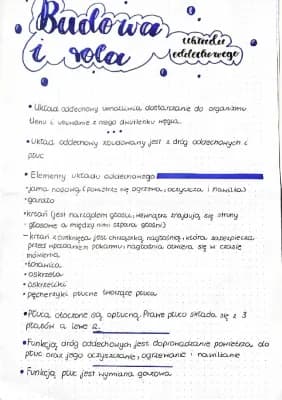 Budowa
i rola
układu
oddechowego
• Układ oddechowy umożliwia dostarczanie do organizmu
tlenu i usuwanie z niego dwutlenku węgla.
• Układ oddechowy zbudowany jest z dróg oddechowych i
płuc
• Elementy układu oddechowego
•jama nosowa (powietrze się ogrzewa, oczyszcza i nawilża)
•gardło
•krtań (jest narządem głosu, wewnątrz znajdują się struny
głosowe a między nimi szpara głośni)
– krtań zamknięta jest chrząstką nagłośnią, która zabezpiecza
przed wpadaniem pokarmu nagłośnia otwiera się w czasie
mówienia
•tchawica
•oskrzela
•oskrzeliki
•pęcherzyki płucne tworzące płuca
•Płuca otoczone są opłucną. Prawe płuco składa się z 3
płatów a lewe 2.
•Funkcją dróg oddechowych jest doprowadzanie powietrza do
płuc oraz jego oczyszczanie, ogrzewanie i nawilżanie
• Funkcją płuc jest wymiana gazowa